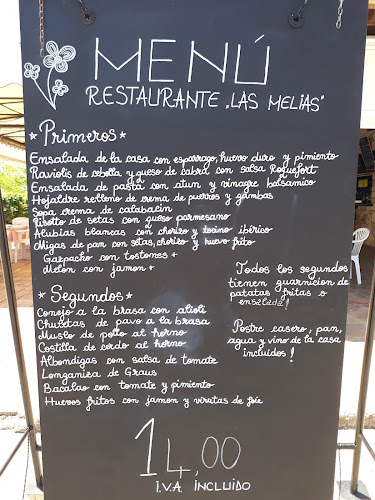 MENÚ
RESTAURANTE „LAS MELIAS"
* Primeros *
Ensalada de la casa con esparrago, huevo duro y pimiento
Raviolis de cebolla y queso de cabra con salsa Roquefort
Ensalada de pasta con atun y vinagre balsamico
Hojaldre relleno de crema de puerros y gambas
Sopa crema de calabacin
Risoto de setas con queso parmesano
Alubias blancas con chorizo y tocino ibérico
Migas de pan con setas, chorizo y huevo frito
Gazpacho con tostones *
Melón con jamon *
* Segundos *
Conejo a la brasa con alioli
Chuletas de pavo a la brasa
Muslo de pollo al horno
Costilla de cerdo al horno
Albondigas con salsa de tomate
Longaniza de Graus
Bacalao con tomate y pimiento
Huevos fritos con jamon y virutas de foie
Todos los segundos
tienen guarnicion de
patatas fritas o
ensalada!
Postre casero, pan,
agua y vino de la casa
incluidos!
14,00
I.V.A INCLUIDO